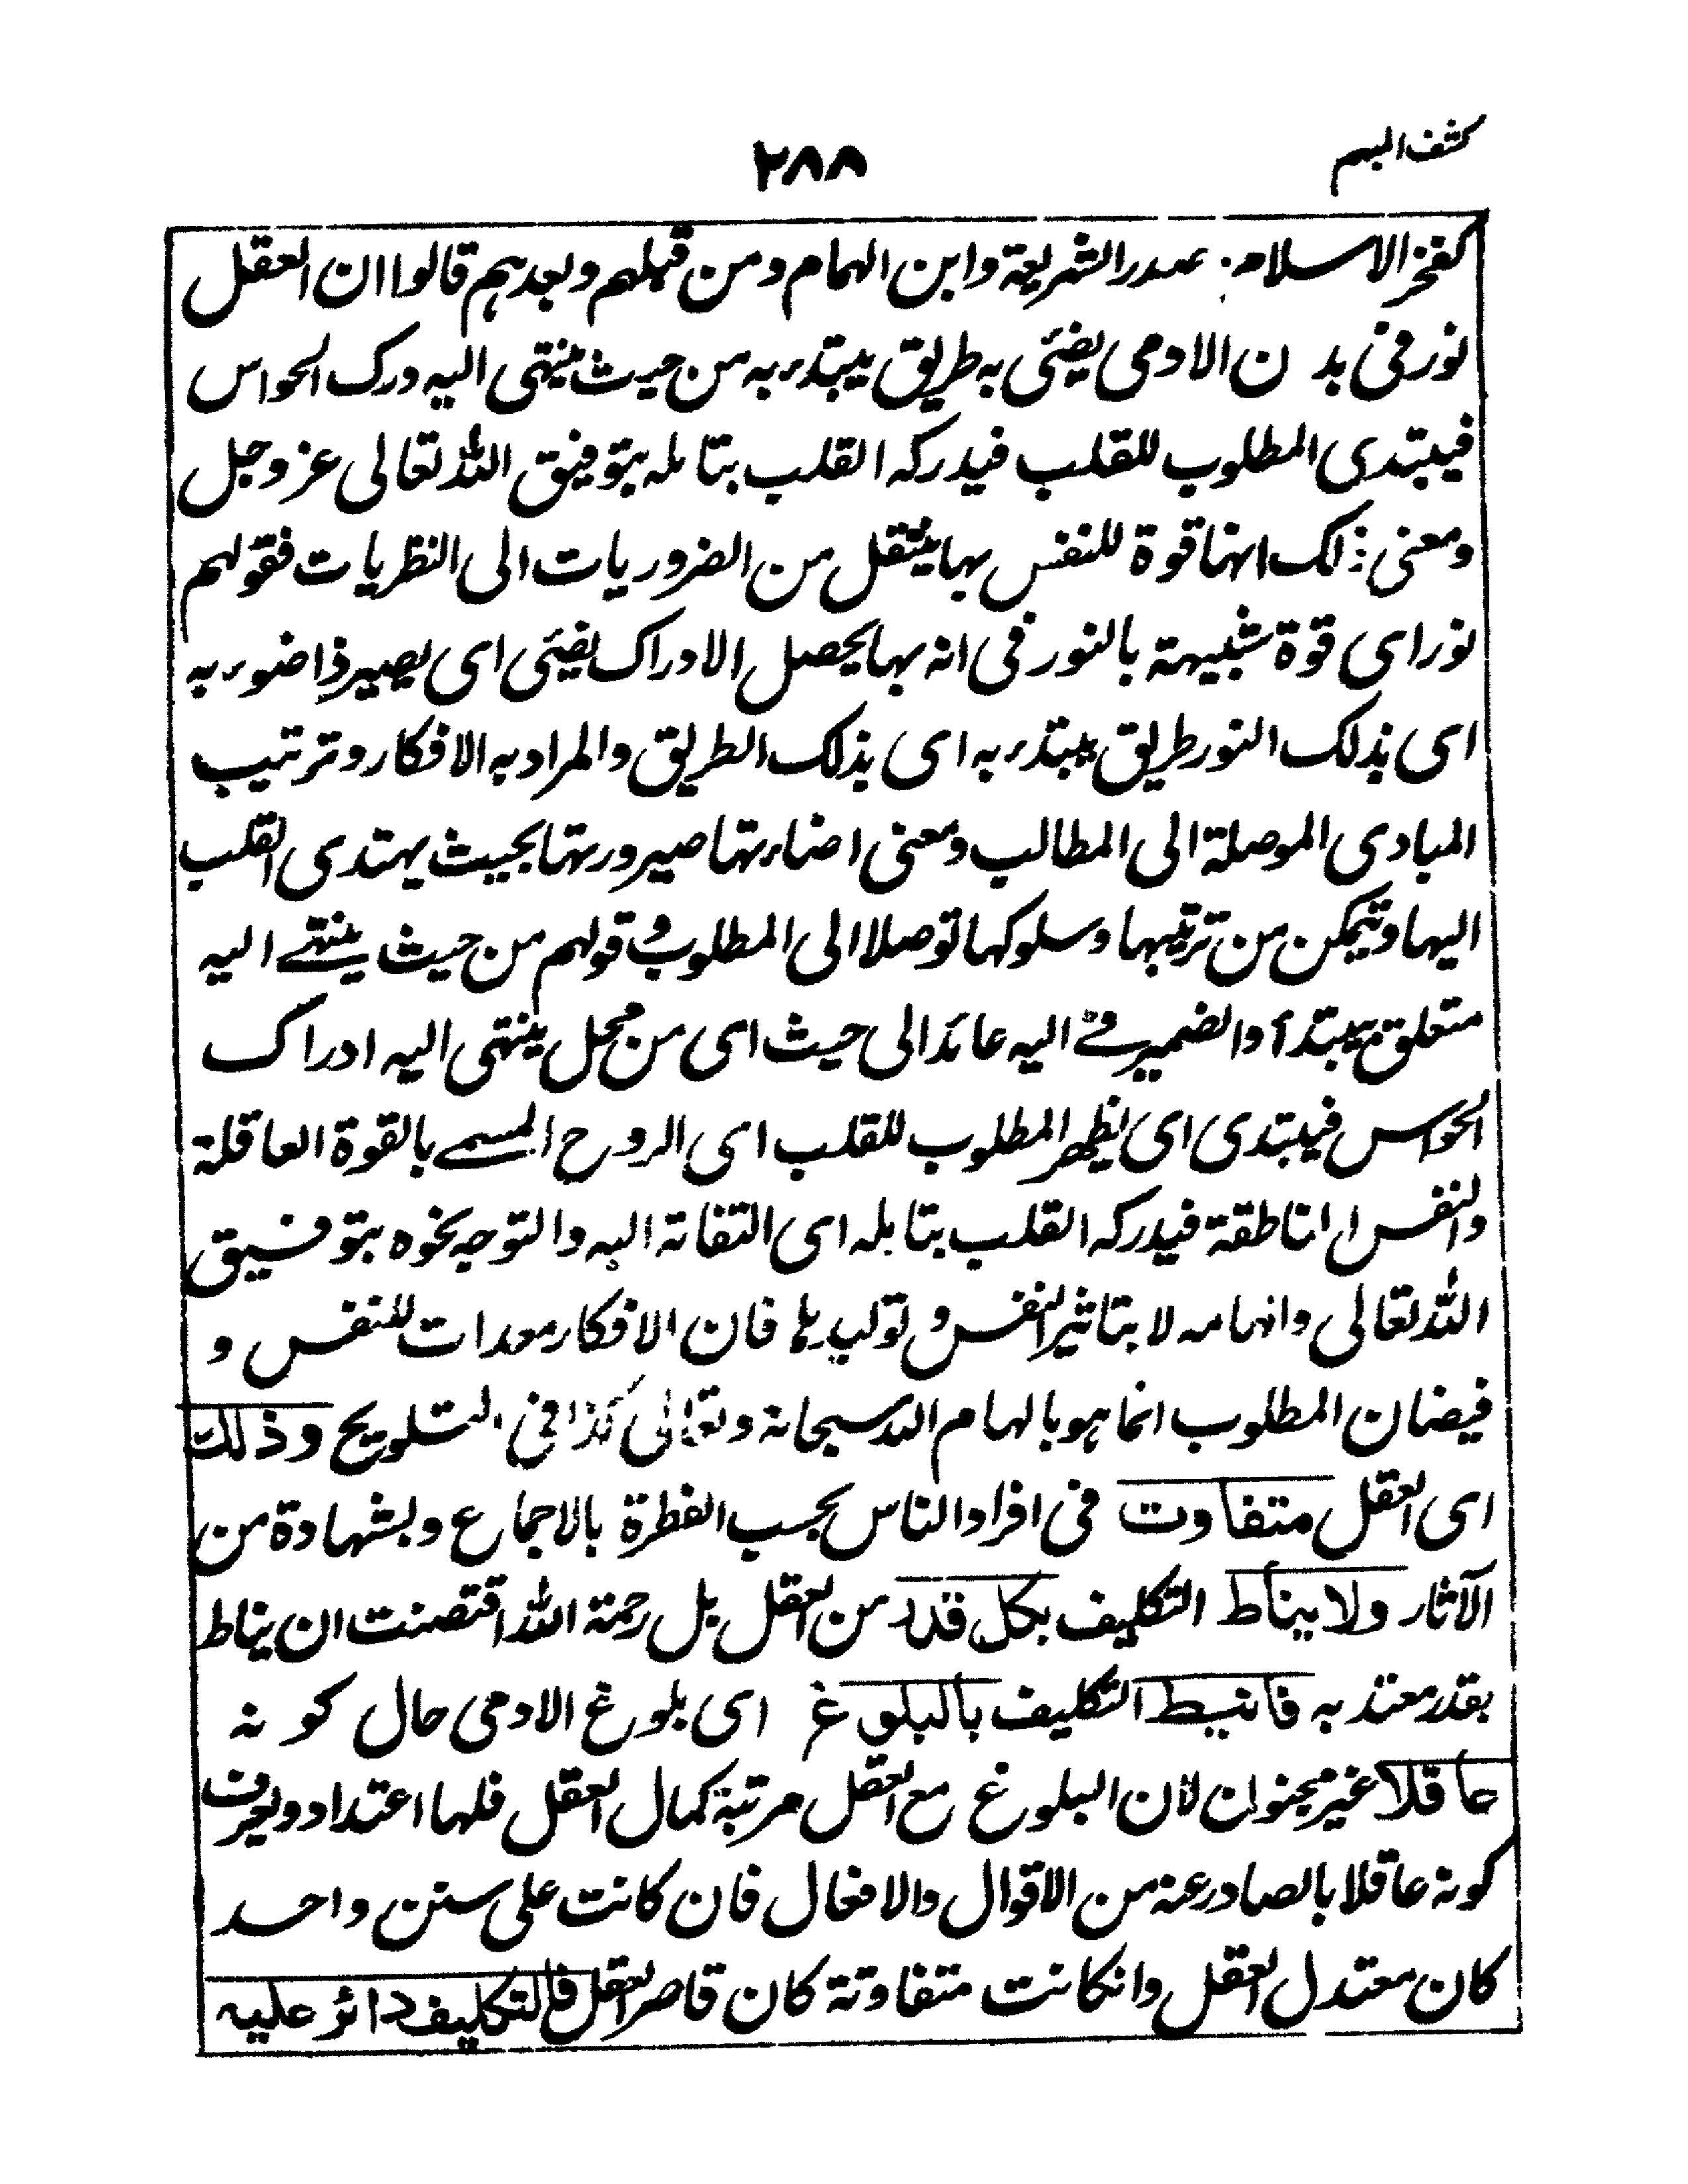 كشف المبهم
٢٨٨
كفخر الاسلام وصدر الشريعة وابن الهمام ومن قبلهم وبعدهم قالوا ان العقل
نور فى بدن الادمى يضئى به طريق يبتدء به من حيث ينتهى اليه درك الحواس
فيبتدى المطلوب للقلب فيدركه القلب بتامله بتوفيق الله تعالى عز وجل
ومعنى ذلك انها قوة للنفس بها ينتقل من الضروريات الى النظريات فقولهم
نور اى قوة شبيهة بالنور فى انه بها يحصل الادراك يضئى اى يصير ذا ضوء به
اى بذلك النور طريق يبتدء به اى بذلك الطريق والمراد به الافكار وترتيب
المبادى الموصلة الى المطالب ومعنى اضاءتها صيرورتها بحيث يهتدى القلب
اليها ويتمكن من ترتيبها وسلوكها توصلا الى المطلوب وقولهم من حيث ينتهے اليه
متعلق بيبتدأ والضمير فے اليه عائد الى حيث اى من محل ينتهى اليه ادراك
الحواس فيبتدى اى يظهر المطلوب للقلب اى الروح المسمے بالقوة العاقلة
والنفس الناطقة فيدركه القلب بتامله اى التفاته اليه والتوجه نحوه بتوفيق
الله تعالى والهامه لا بتاثير النفس وتوليدها فان الافكار معدات للنفس و
فيضان المطلوب انما هو بالهام الله سبحانه وتعالى كذا فى التلويح وذلك
اى العقل متفاوت فى افراد الناس بحسب الفطرة بالاجماع وبشهادة من
الآثار ولا يناط التكليف بكل قدر من العقل بل رحمة الله اقتضت ان يناط
بقدر معتد به فانيط التكليف بالبلوغ اى بلوغ الادمى حال كونه
عاقلا غير مجنون لان البلوغ مع العقل مرتبة كمال العقل فلها اعتداد ويعرف
كونه عاقلا بالصادر عنه من الاقوال والافعال فان كانت على سنن واحد
كان معتدل العقل وانكانت متفاوتة كان قاصر العقل فالتكليف دائر عليه